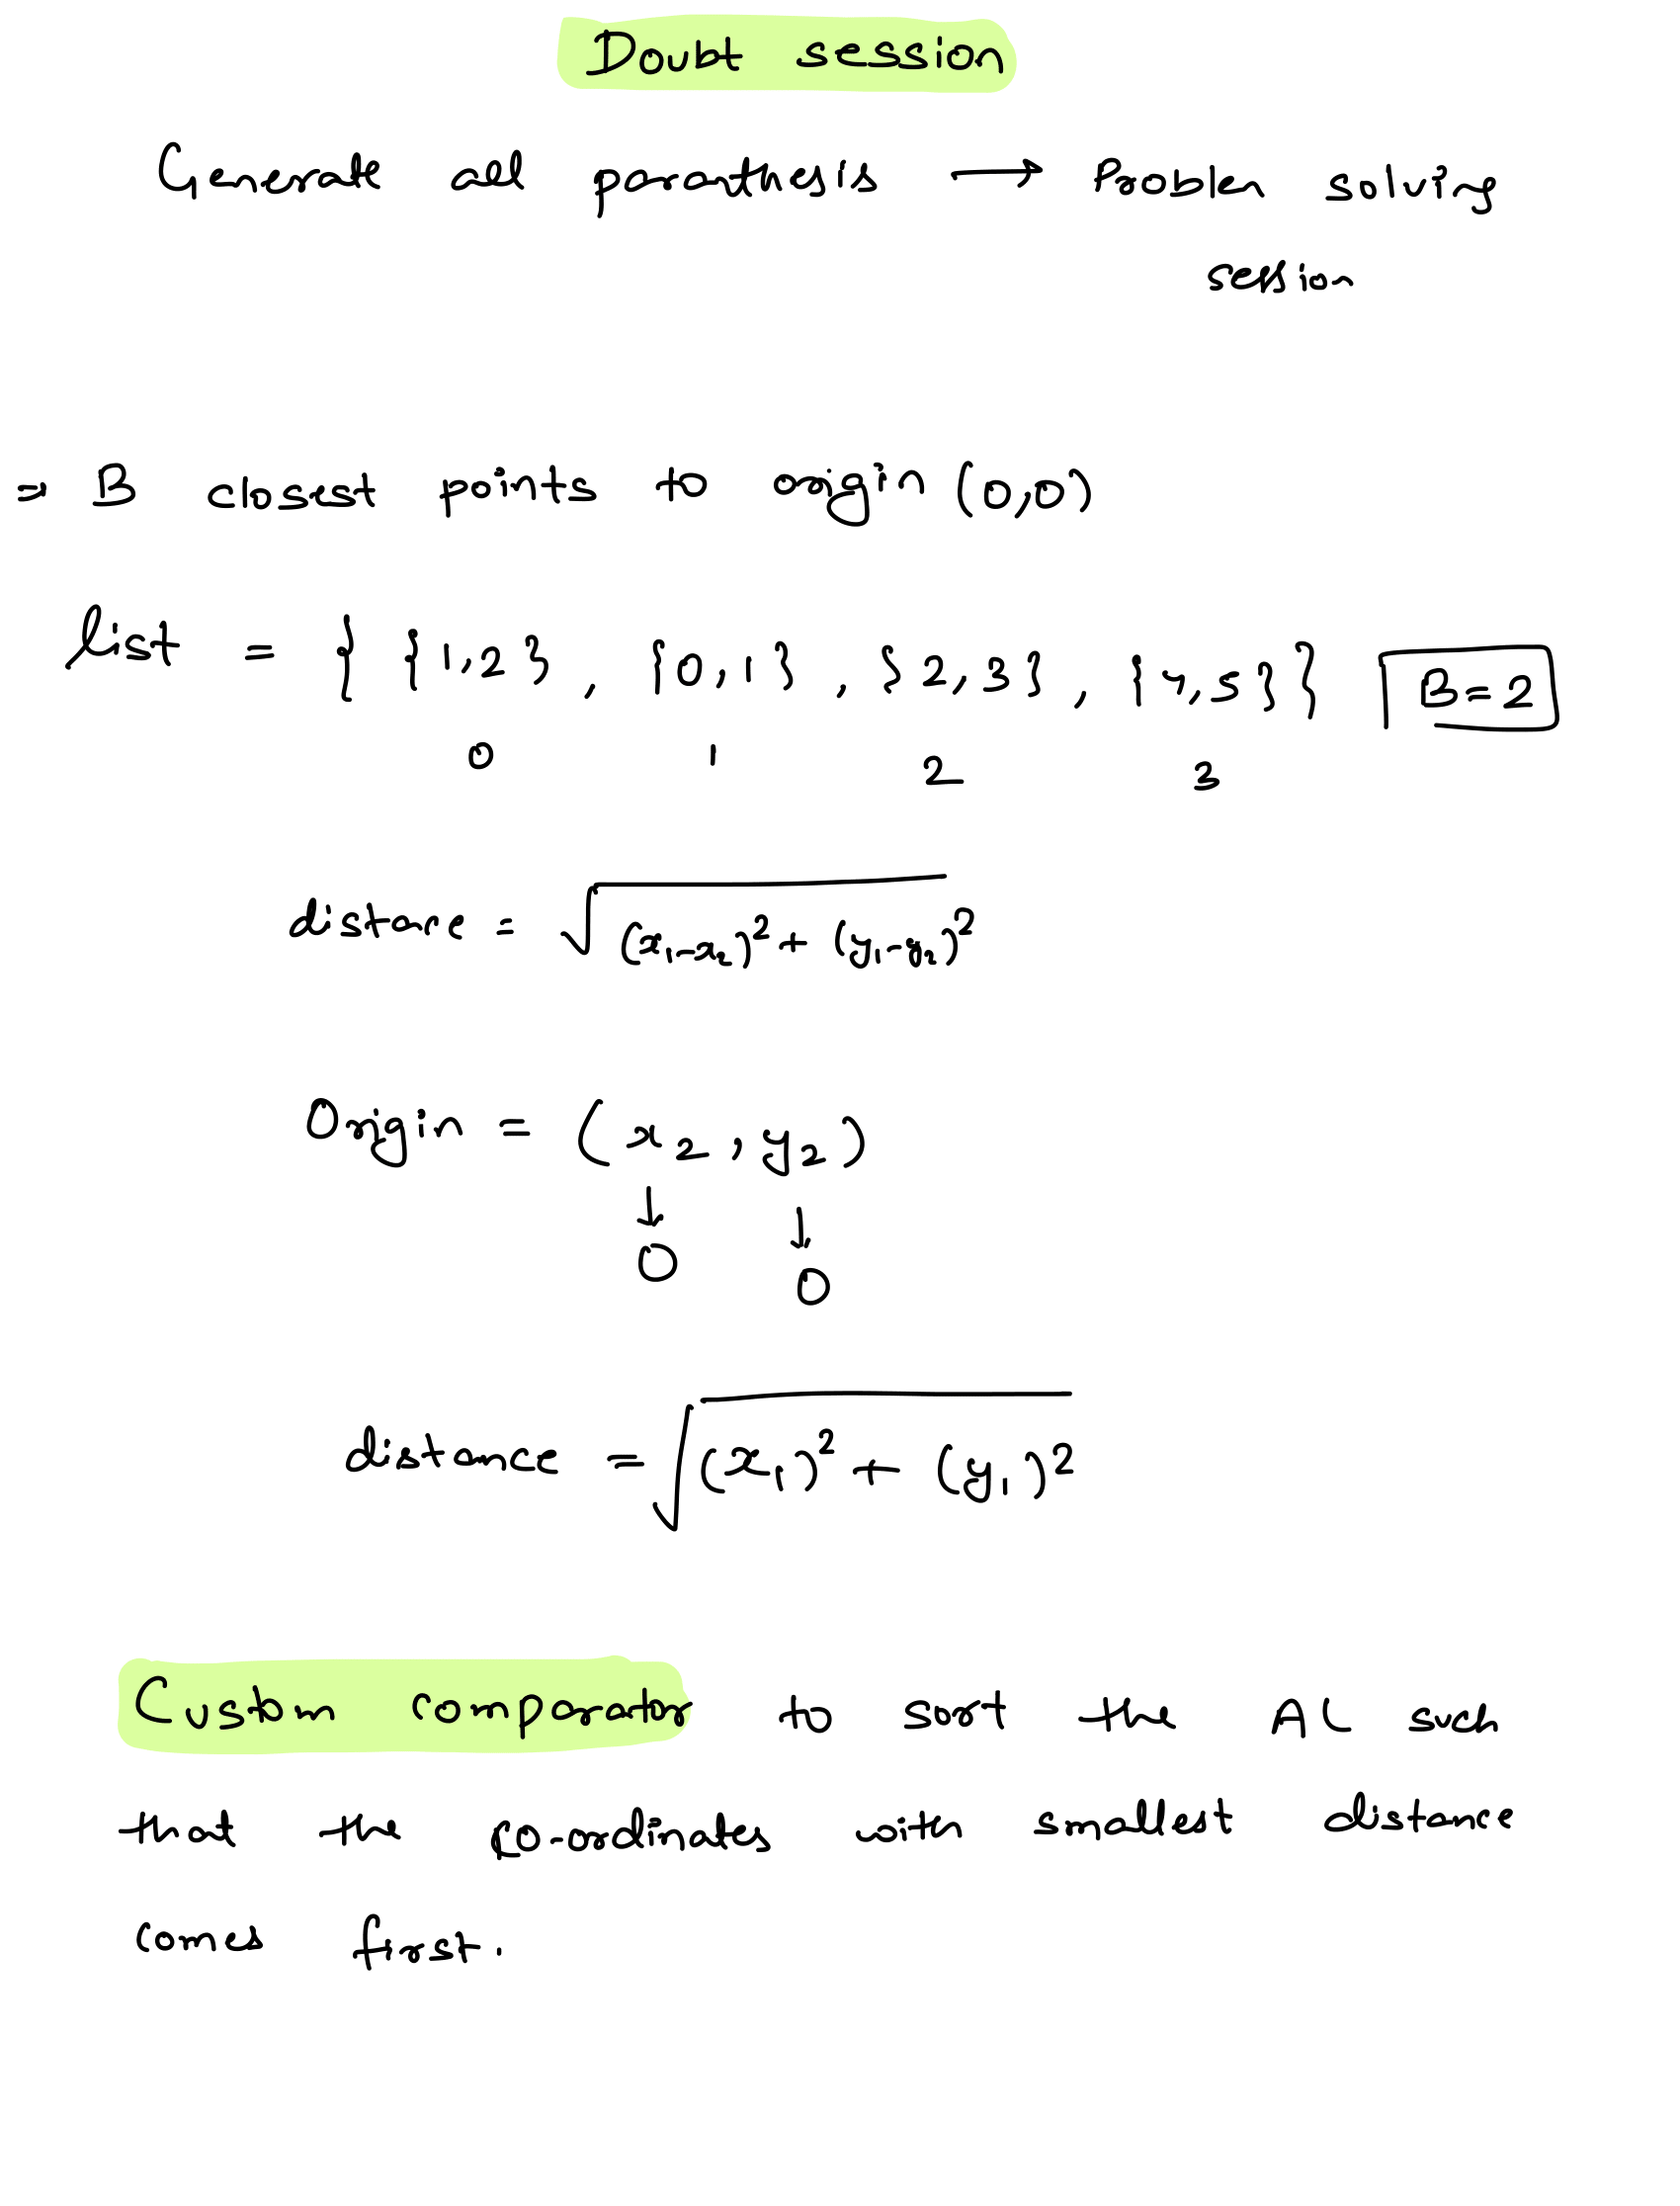 Doubt session
Generate all paranthesis → Problem solving
session
⇒ B closest points to origin (0,0)
list = { {1,2} , {0,1} , {2,3} , {4,5} } B=2
0 1 2 3
distance = √(x₁-x₂)² + (y₁-y₂)²
Origin = (x₂ , y₂)
↓ ↓
0 0
distance = √(x₁)² + (y₁)²
Custom comparator to sort the AL such
that the co-ordinates with smallest distance
comes first.